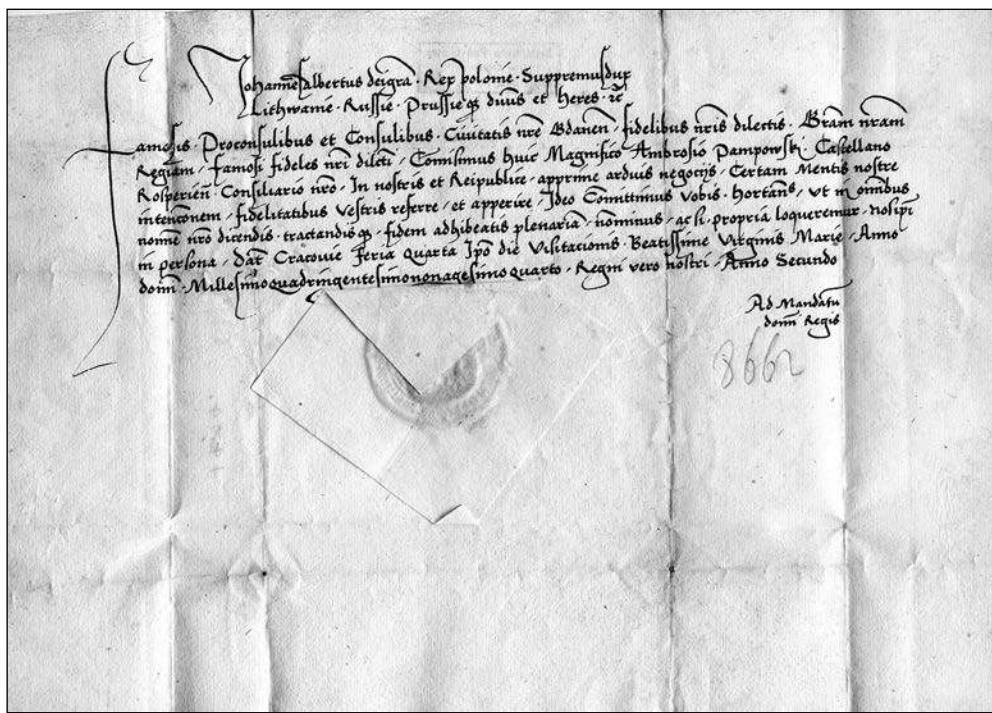 Johannes albertus dei gra · Rex polonie · Supremus dux
Lithwanie · Russie · Prussieq dnus et heres · rc
Famosis · Proconsulibus et Consulibus · Civitatis nre Gdanen · fidelibus nris dilectis · Gram nram
Regiam · famosi fideles nri dilecti · Comisimus huic Magnifico Ambrosio Pampowski Castellano
Rosperien · Consiliario nro · In nostris et Reipublice · apprime arduis negocijs · Certam Mentis nostre
intenconem · fidelitatibus vestris referre · et apperire · Ideo Comittimus vobis · hortans · ut in omnibus
nomine nro dicendis · tractandisq · fidem adhibeatis plenaria · ac si propria loqueremur · nosipi
in persona · Dat Cracovie feria Quarta Ipo die Visitacionis · Beatissime Virginis Marie · Anno
domi · Millesimoquadringentesimononagesimoquarto · Regni vero nostri · Anno Secundo
Ad Mandatu
domi Regis
8662